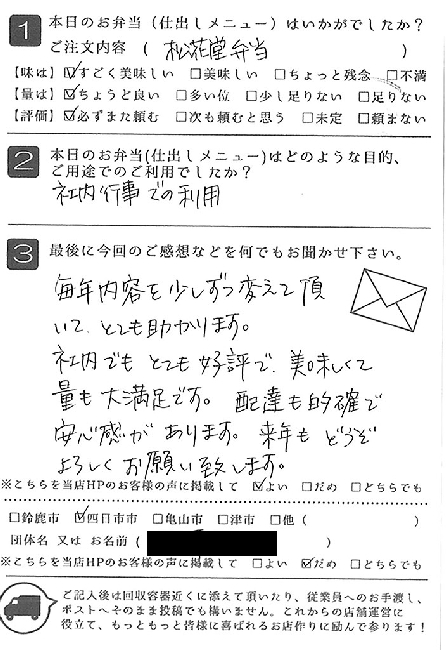 1 本日のお弁当（仕出しメニュー）はいかがでしたか？
ご注文内容（ 松花堂弁当 ）
【味は】☑すごく美味しい □美味しい □ちょっと残念 □不満
【量は】☑ちょうど良い □多い位 □少し足りない □足りない
【評価】☑必ずまた頼む □次も頼むと思う □未定 □頼まない
2 本日のお弁当(仕出しメニュー)はどのような目的、
ご用途でのご利用でしたか？
社内行事での利用
3 最後に今回のご感想などを何でもお聞かせ下さい。
毎年内容を少しずつ変えて頂
いて、とても助かります。
社内でもとても好評で、美味しくて
量も大満足です。配達も的確で
安心感があります。来年もどうぞ
よろしくお願い致します。
※こちらを当店HPのお客様の声に掲載して ☑よい □だめ □どちらでも
□鈴鹿市 ☑四日市市 □亀山市 □津市 □他（ ）
団体名 又は お名前（ ）
※こちらを当店HPのお客様の声に掲載して □よい ☑だめ □どちらでも
ご記入後は回収容器近くに添えて頂いたり、従業員へのお手渡し、
ポストへそのまま投稿でも構いません。これからの店舗運営に
役立て、もっともっと皆様に喜ばれるお店作りに励んで参ります！